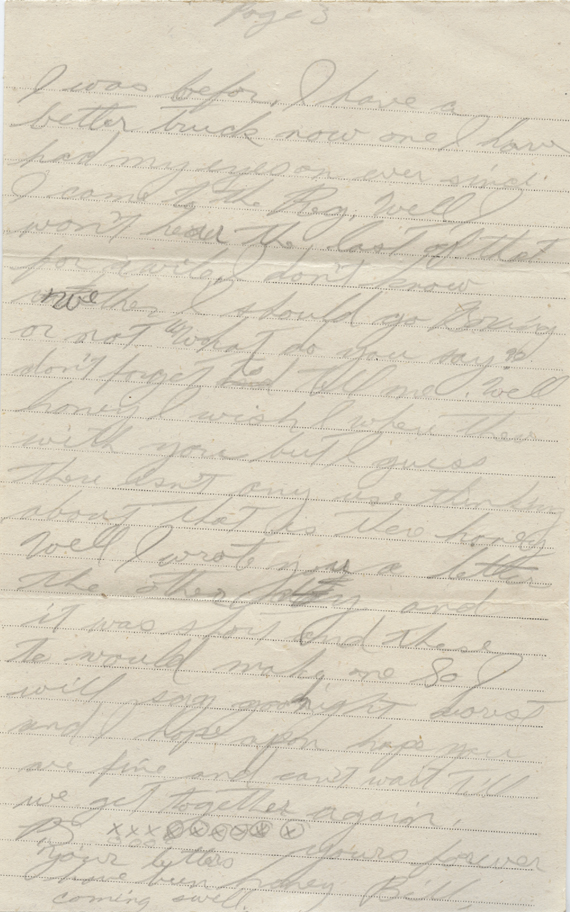 Page 3
I was befor, I have a
better truck now one I have
had my eyes on ever since
I came to the Reg. Well I
won't hear the last of that
for awile, I don't know
wether I should go Boxing
or not "What do you say?"
don't forget to tell me. Well
honey I wish I where there
with you but I guess
there isn't any use thinking
about that is there honey
Well I wrote you a letter
the other day and
it was short and these
to would make one So I
will say goodnight
and I hope apon hope you
are fine and can't wait till
we get together again.
xxx
yours forever
Your letters
have been honey Bill,
coming swell